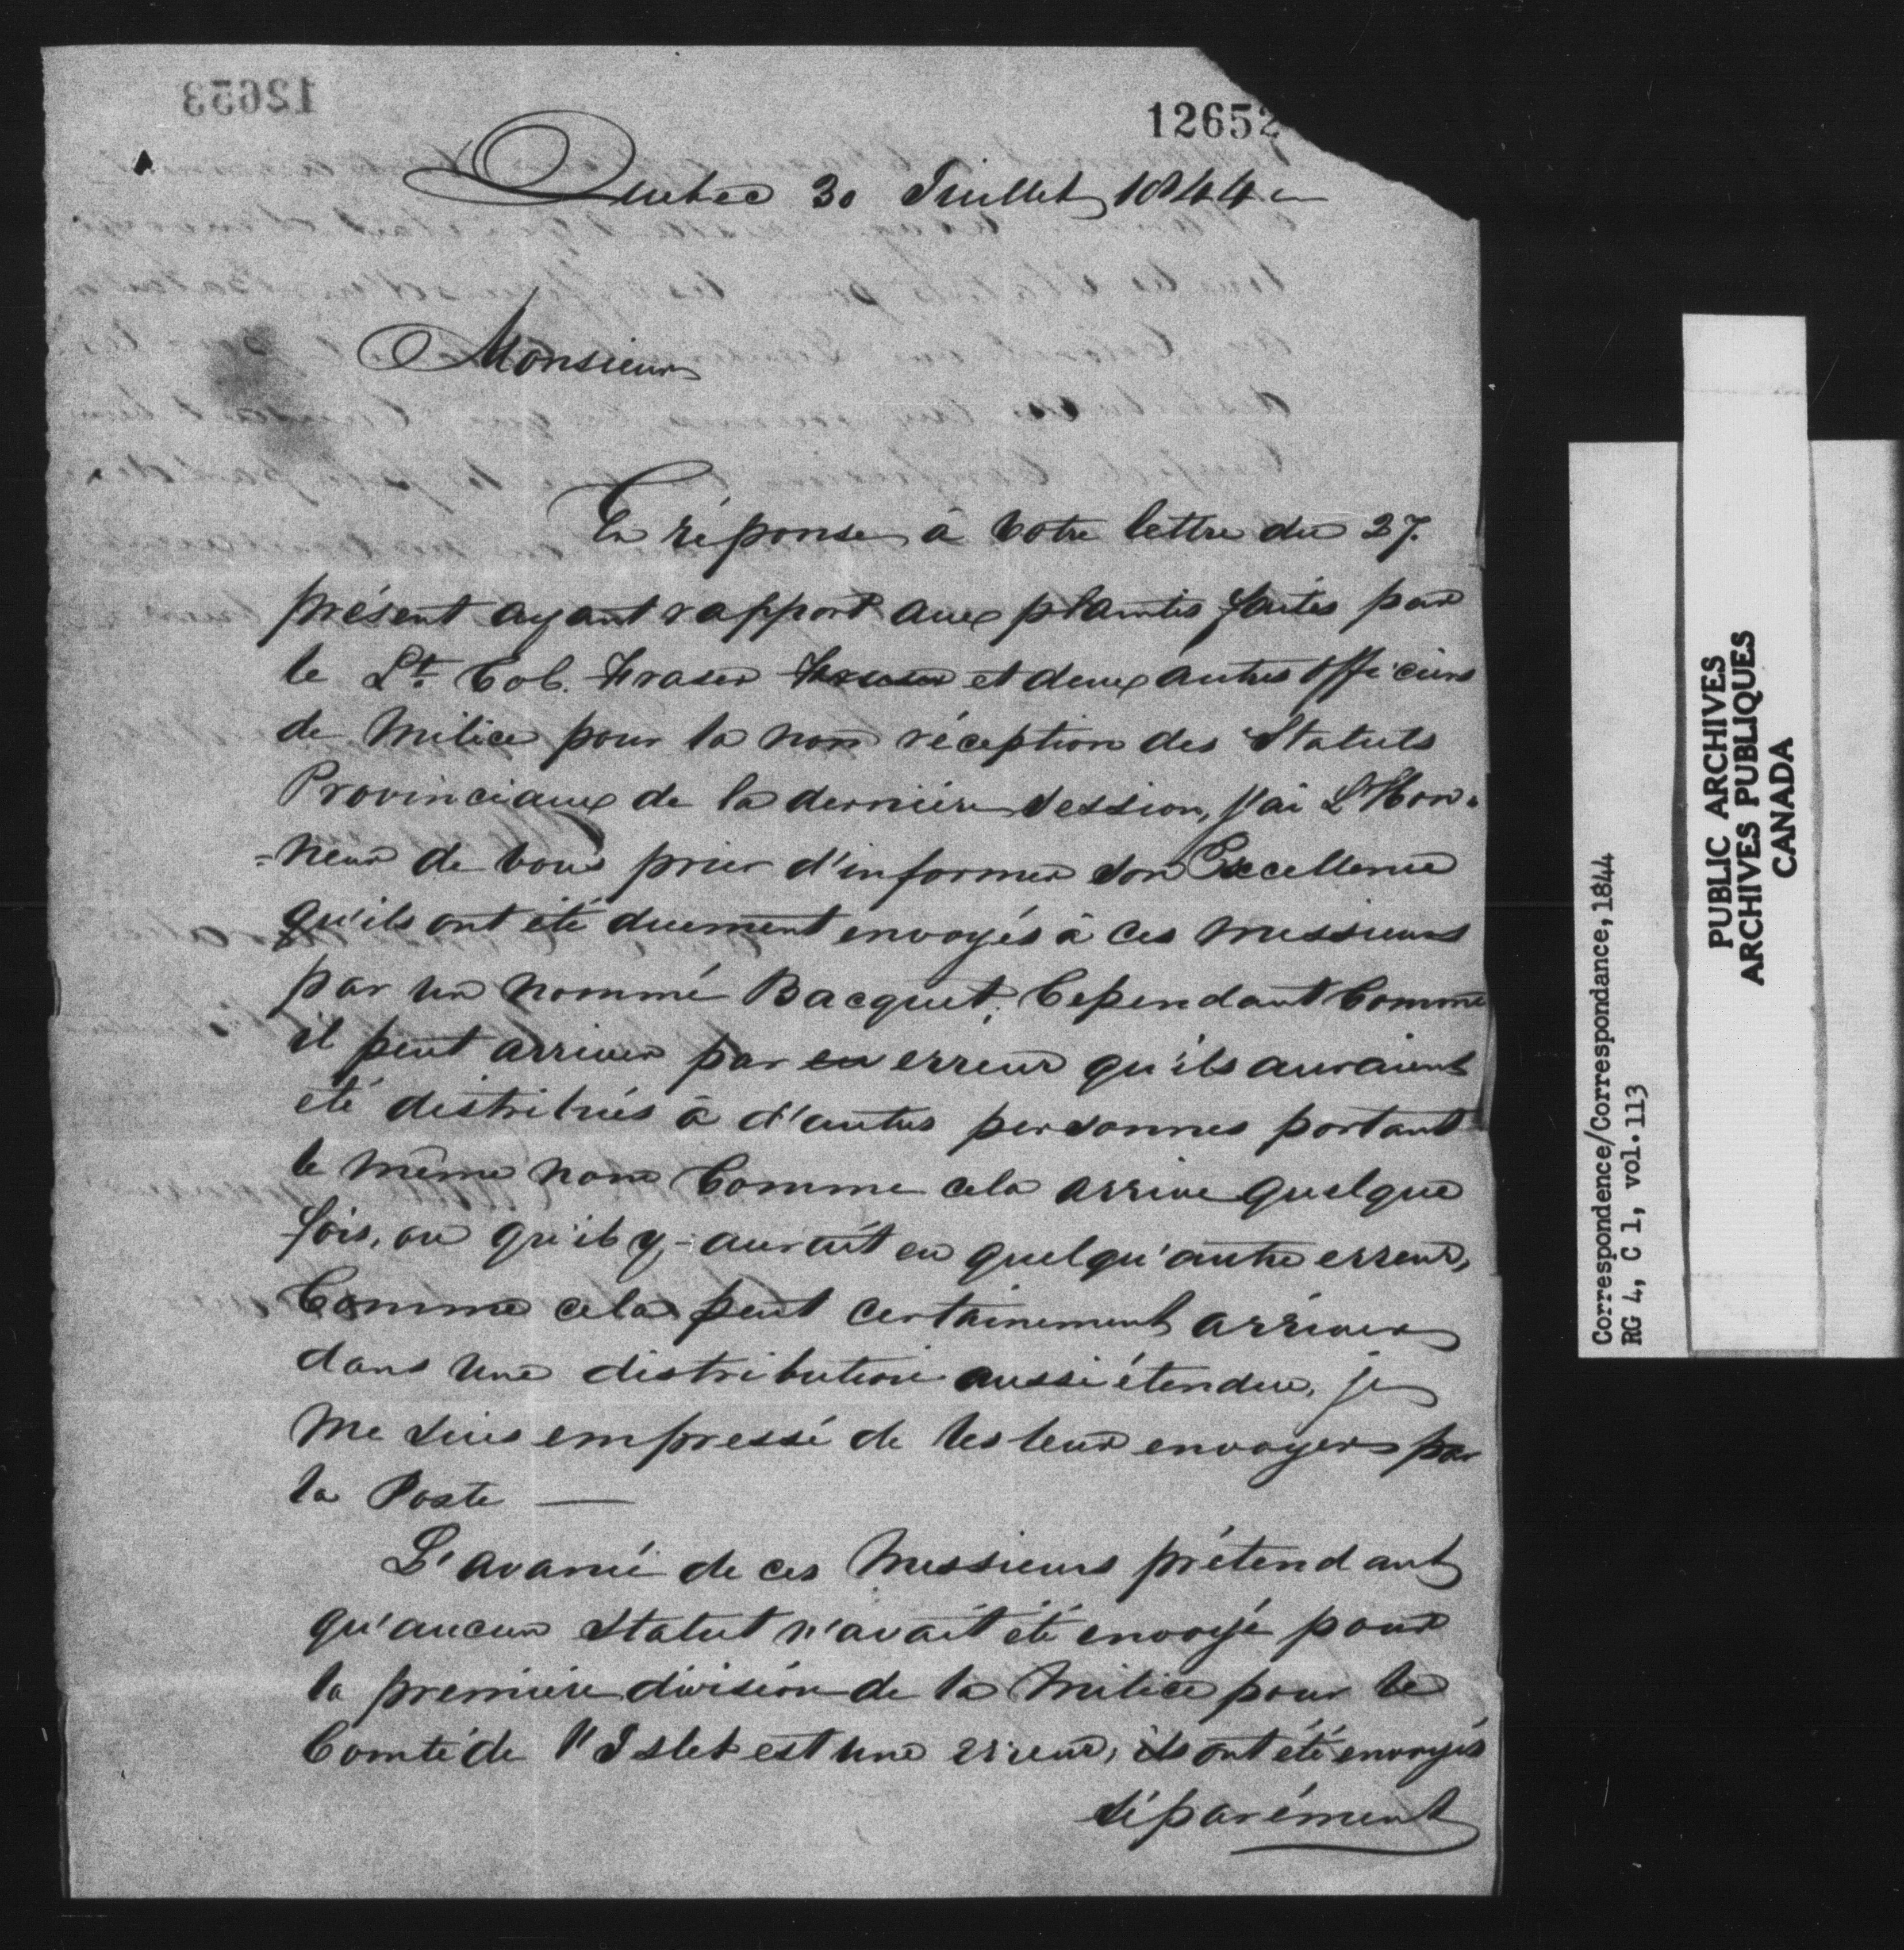 12653
12652
Quebec 30 Juillet 1844
Monsieur
En réponse à votre lettre du 27.
présent ayant rapport aux plaintes faites par
le Lt. Col. Fraser Fraser et deux autres officiers
de Milice pour la non réception des Statuts
Provinciaux de la dernière Session, j'ai L'Hon-
=neur de vous prier d'informer Son Excellence
qu'ils ont été duement envoyés à ces Messieurs
par un nommé Bacquet, Cependant Comme
il peut arriver par eu erreur qu'ils auraient
été distribués à d'autres personnes portant
le même nom Comme cela arrive quelque
fois, ou qu'il y, aurait eu quelqu'autre erreur,
Comme cela peut certainement arriver
dans une distribution aussi étendue, je
me suis empressé de les leur envoyer par
la Poste —
L'avancé de ces Messieurs prétendant
qu'aucun Statut n'avait été envoyé pour
la première division de la Milice pour le
Comté de l'Islet est une erreur, ils ont été envoyés
séparément
Correspondence/Correspondance, 1844
RG 4, C 1, vol. 113
PUBLIC ARCHIVES
ARCHIVES PUBLIQUES
CANADA